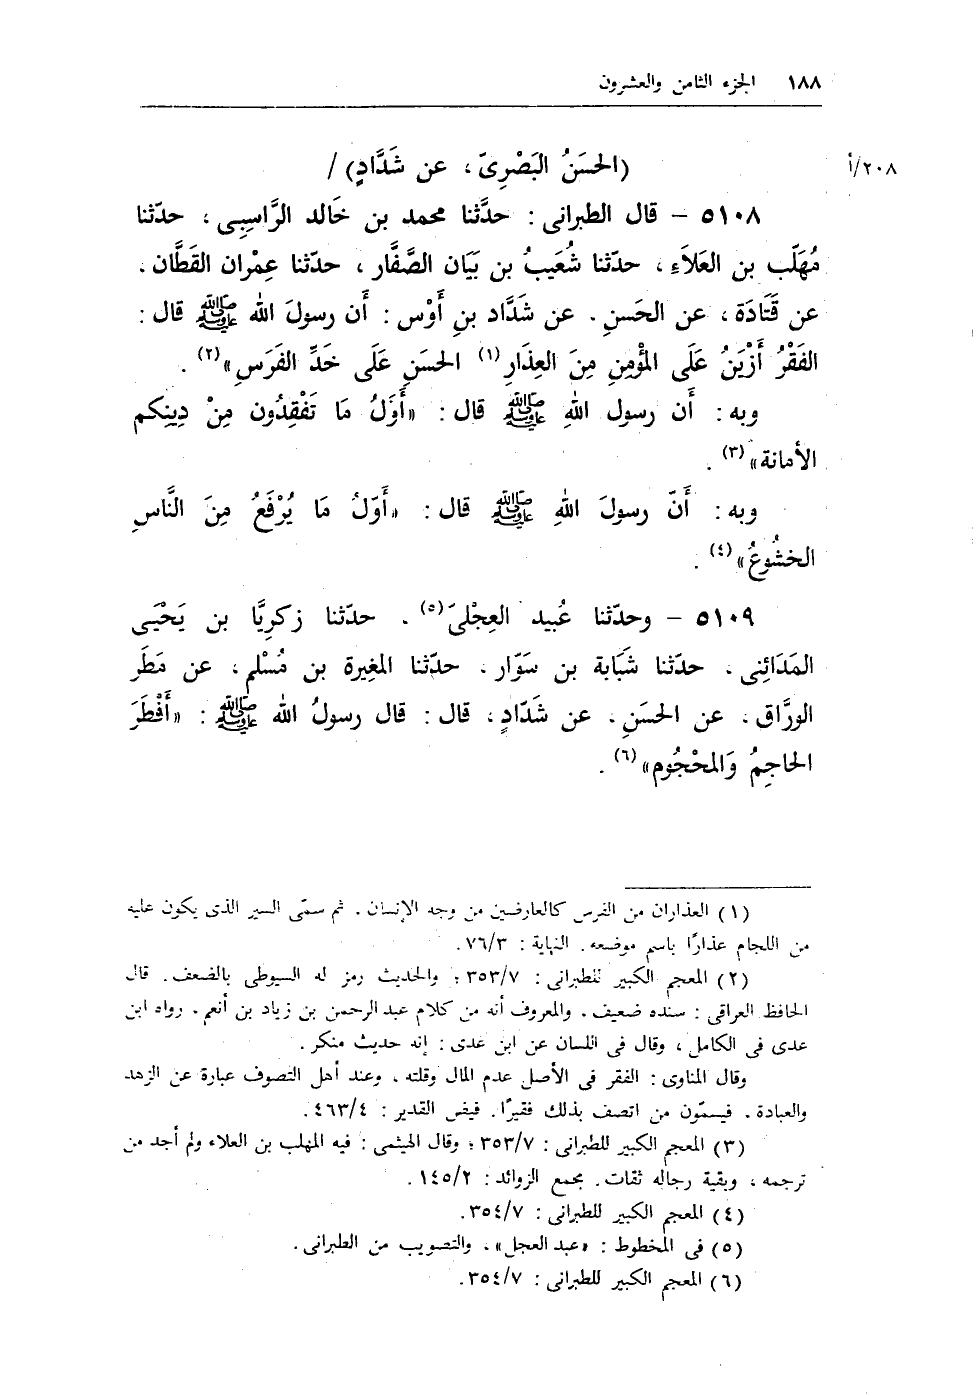 ١٨٨ الجزء الثامن والعشرون
(الحَسَنُ البَصْرِىّ ، عن شَدَّادٍ) / ٢٠٨/أ
٥١٠٨ – قال الطبرانى : حدَّثنا محمد بن خَالد الرَّاسِبِى ، حدّثنا
مُهَلّب بن العَلاَءِ ، حدّثنا شُعَيبُ بن بَيَان الصَّفَّار ، حدّثنا عِمْران القَطَّان .
عن قَتَادَة ، عن الحَسنِ . عن شَدَّاد بنِ أَوْس : أَن رسولَ الله ﷺ قال :
الفَقْرُ أَزْيَنُ عَلَى المؤْمنِ مِنَ العِذَارِ (١) الحسَنِ عَلَى خَدِّ الفَرَسِ» (٢) .
وبه : أَن رسول اللهِ ﷺ قال : «أَوَلُ مَا تَفْقِدُون مِنْ دِينِكم
الأمانة» (٣) .
وبه : أَنّ رسولَ اللهِ ﷺ قال : «أَوّلُ مَا يُرْفَعُ مِنَ النَّاسِ
الخشُوعُ» (٤) .
٥١٠٩ – وحدّثنا عُبيد العِجْلىّ (٥) . حدّثنا زكرِيَّا بن يَحْيَى
المَدَائِنِى . حدّثنا شَبَابة بن سَوّار . حدّثنا المغِيرة بن مُسْلم . عن مَطَر
الورَّاق . عن الحسَنِ . عن شَدّادٍ ، قال : قال رسولُ الله ﷺ : «أَفْطَرَ
الحاجِمُ وَالمحْجُوم» (٦) .
(١) العذاران من الفرس كالعارضين من وجه الإنسان . ثم سمّى السير الذى يكون عليه
من اللجام عذارًا باسم موضعه . النهاية : ٧٦/٣ .
(٢) المعجم الكبير للطبرانى : ٣٥٣/٧ ؛ والحديث رمز له السيوطى بالضعف . قال
الحافظ العراقى : سنده ضعيف . والمعروف أنه من كلام عبد الرحمن بن زياد بن أنعم . رواه ابن
عدى فى الكامل ، وقال فى اللسان عن ابن عدى : إنه حديث منكر .
وقال المناوى : الفقر فى الأصل عدم المال وقلته . وعند أهل التصوف عبارة عن الزهد
والعبادة . فيسمّون من اتصف بذلك فقيرًا . فيض القدير : ٤٦٣/٤ .
(٣) المعجم الكبير للطبرانى : ٣٥٣/٧ ؛ وقال الهيثمى : فيه المهلب بن العلاء ولم أجد من
ترجمه ، وبقية رجاله ثقات . مجمع الزوائد : ١٤٥/٢ .
(٤) المعجم الكبير للطبرانى : ٣٥٤/٧ .
(٥) فى المخطوط : «عبد العجل» . والتصويب من الطبرانى .
(٦) المعجم الكبير للطبرانى : ٣٥٤/٧ .